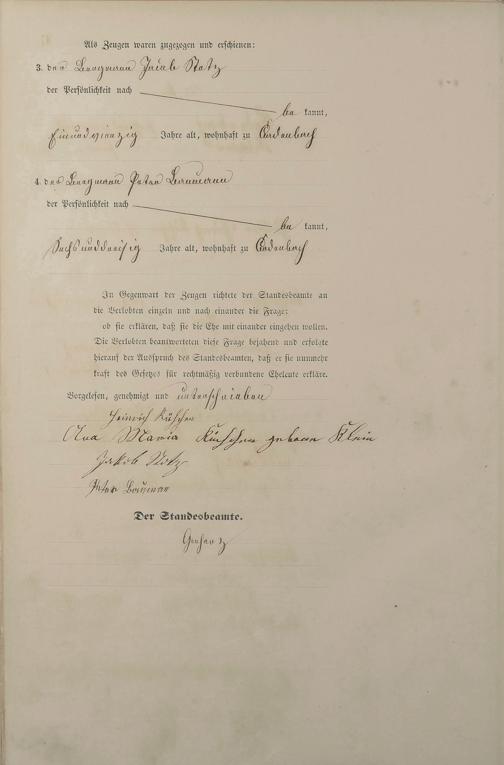 Als Zeugen waren zugezogen und erschienen:
3. der Bergmann Jacob Stotz
der Persönlichkeit nach
be kannt,
Einundvierzig Jahre alt, wohnhaft zu
4. der Bergmann Peter Baumann
der Persönlichkeit nach
be kannt,
Sechsunddreißig Jahre alt, wohnhaft zu
In Gegenwart der Zeugen richtete der Standesbeamte an
die Verlobten einzeln und nach einander die Frage:
ob sie erklären, daß sie die Ehe mit einander eingehen wollen.
Die Verlobten beantworteten diese Frage bejahend und erfolgte
hierauf der Ausspruch des Standesbeamten, daß er sie nunmehr
kraft des Gesetzes für rechtmäßig verbundene Eheleute erkläre.
Vorgelesen, genehmigt und unterschrieben
Heinrich Kirschen
Ana Maria Kirschen geborne Klein
Jakob Stotz
Peter Baumann
Der Standesbeamte.